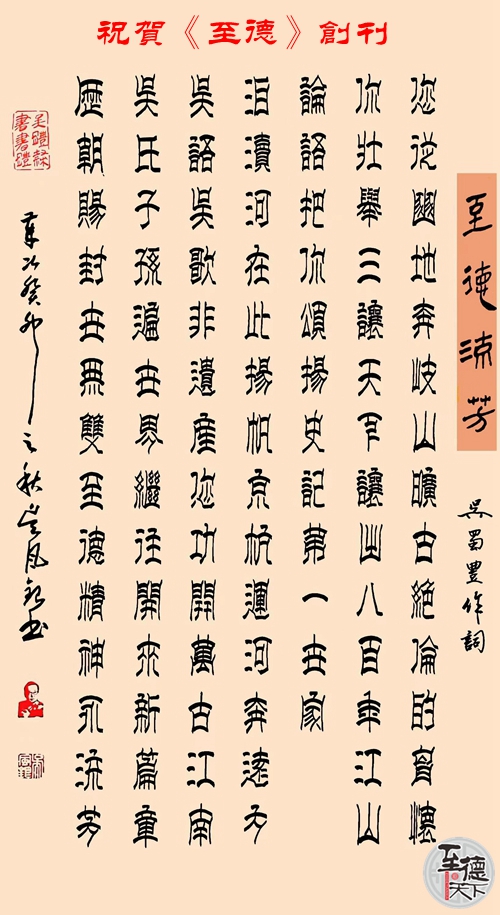 祝賀《至德》創刊
至德流芳
吳蜀豊作詞
您從豳地奔岐山曠古絕倫的胷懷
你壯舉三讓天下讓出八百年江山
論語把你頌揚史記第一世家
泊瀆河在此揚帆京杭運河奔遠方
吳語吳歌非遺產您功開萬古江南
吳氏子孫遍世界繼往開來新篇章
歷朝賜封世無雙至德精神永流芳
歲次癸卯之秋吳書
至德天下